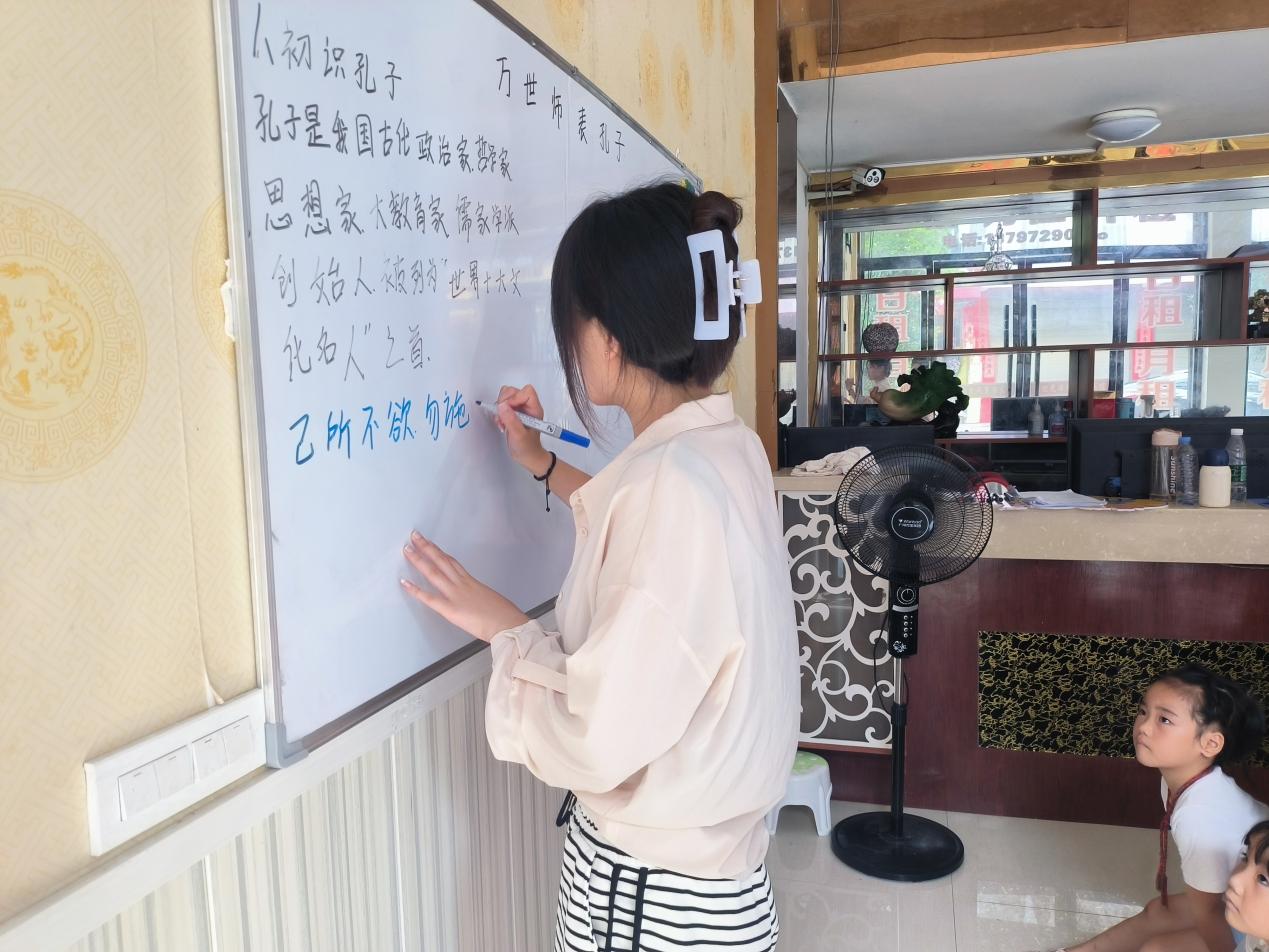 初识孔子
万世师表孔子
孔子是我国古代政治家、哲学家
思想家、大教育家、儒家学派
创始人、被列为"世界十大文
化名人"之首.
己所不欲.勿施
电话
sunshine